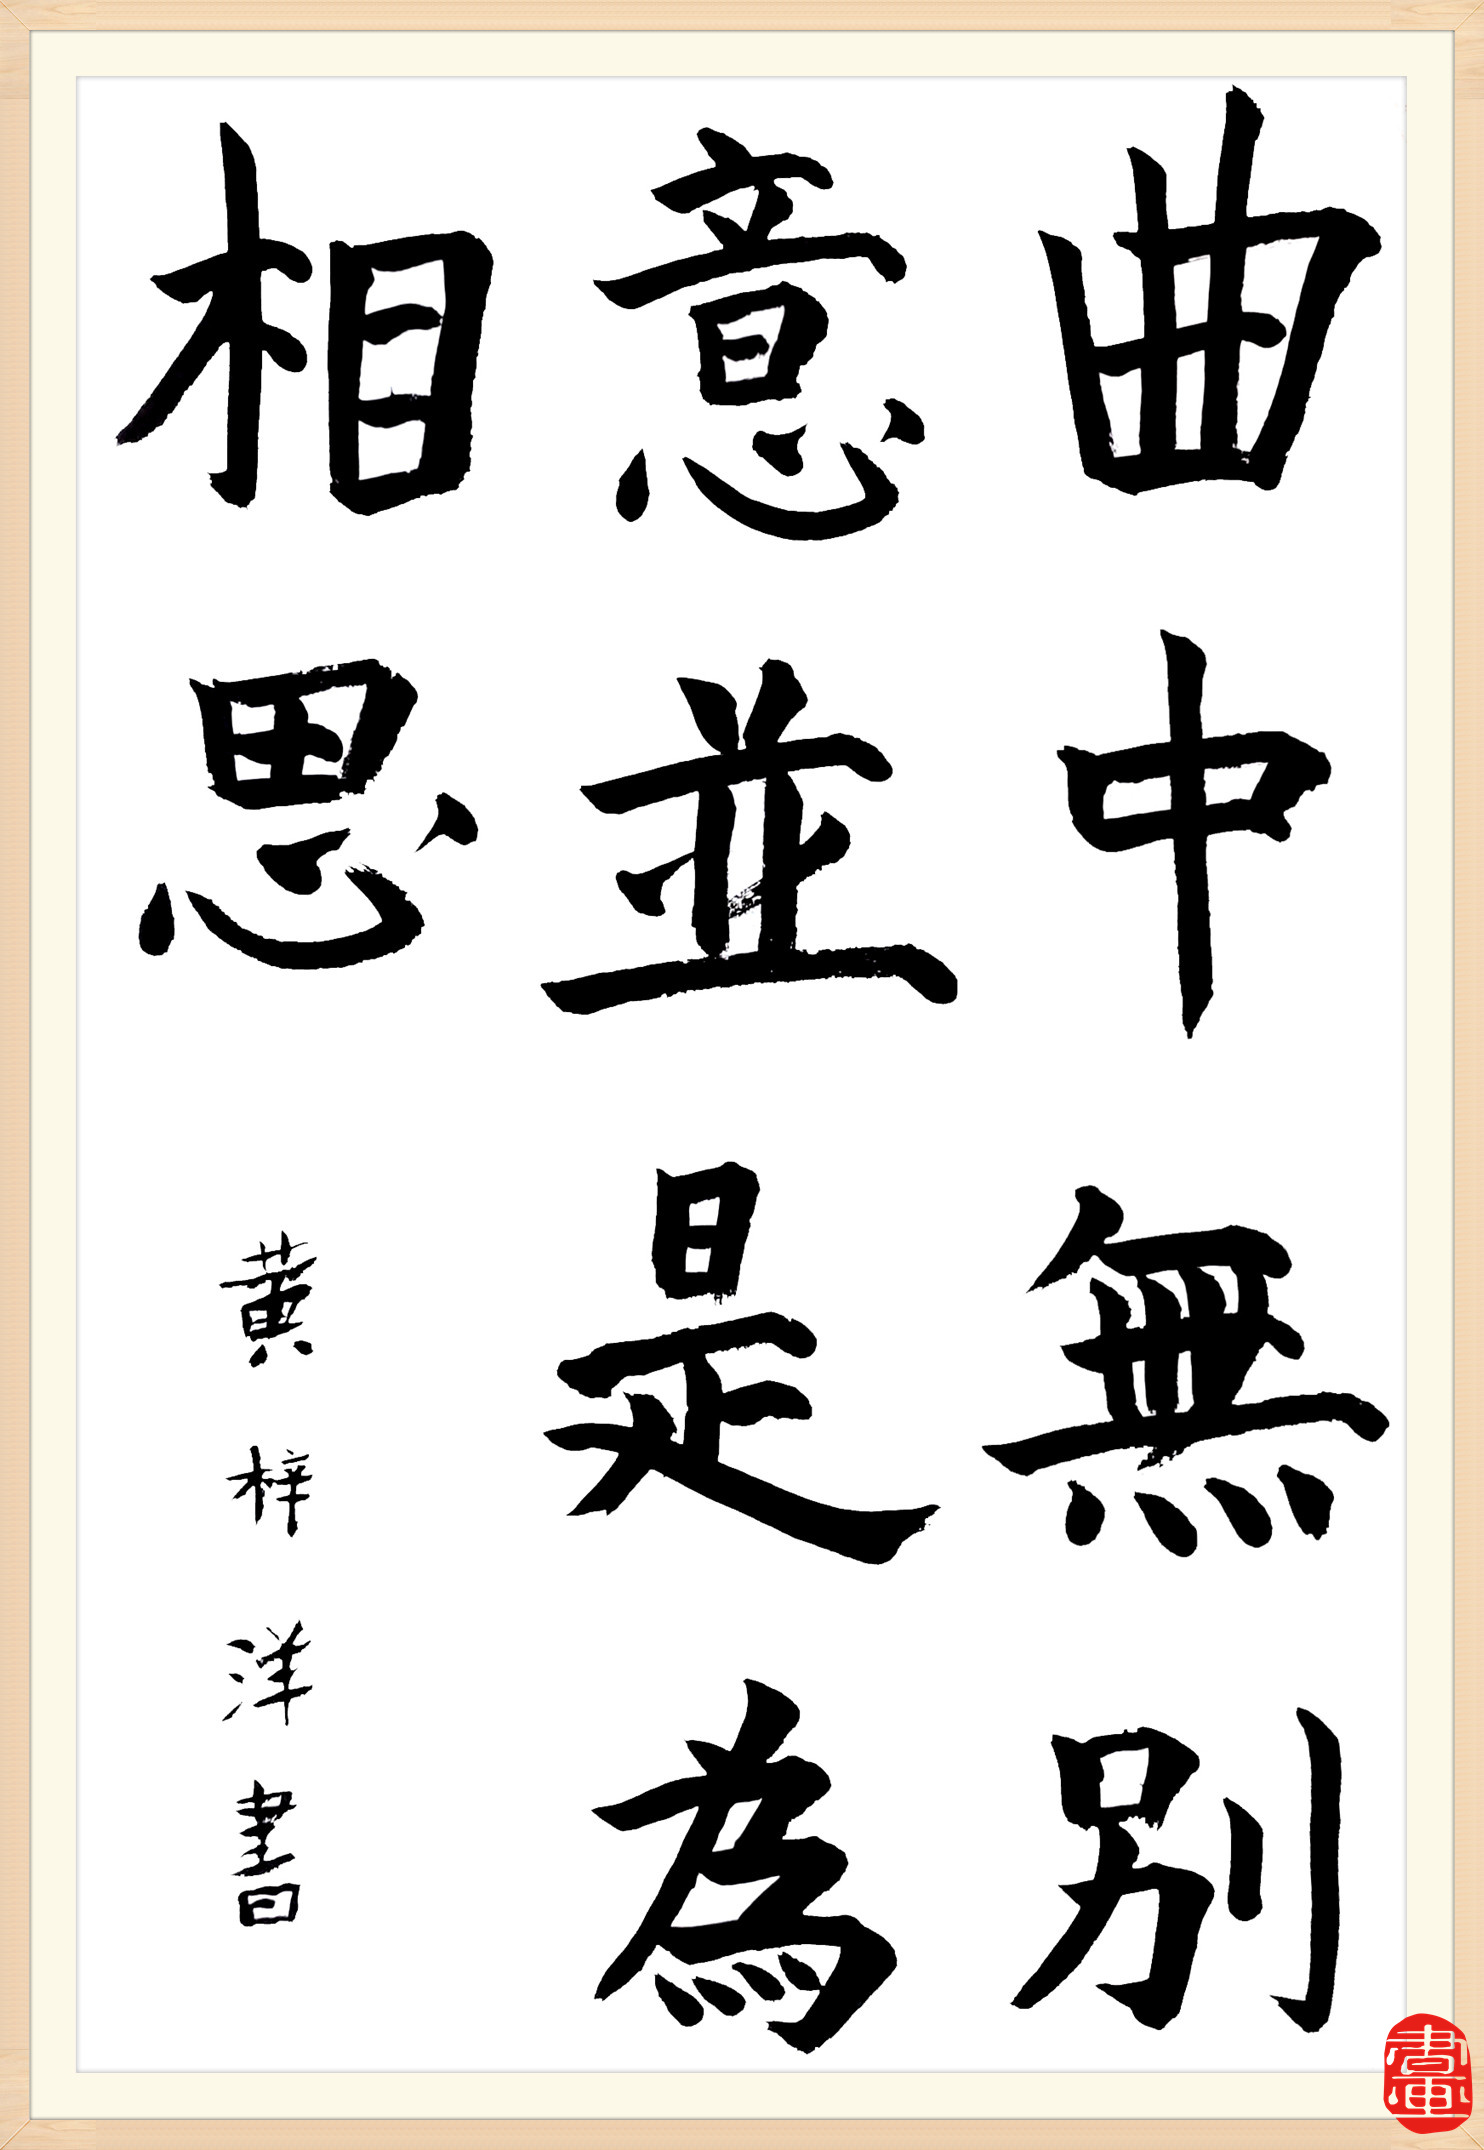 曲中無別
意並是為
相思
黄梓洋書